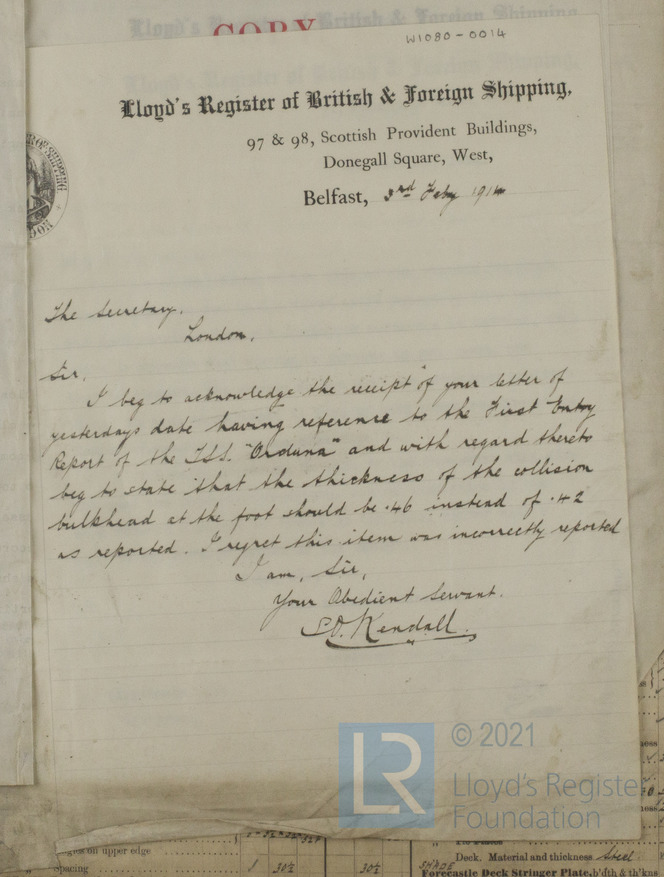 COPY
W1080-0014
Lloyd's Register of British & Foreign Shipping,
97 & 98, Scottish Provident Buildings,
Donegall Square, West,
Belfast, 3rd Feby 1914
The Secretary,
London.
Sir,
I beg to acknowledge the receipt of your letter of
yesterdays date having reference to the First Entry
Report of the T.S.S. "Orduna" and with regard thereto
beg to state that the thickness of the collision
bulkhead at the foot should be .46 instead of .42
as reported. I regret this item was incorrectly reported
I am, Sir,
Your Obedient Servant.
Kendall.
© 2021
LR
Lloyd's Register
Foundation
on upper edge
Spacing
30½ 30½
Deck. Material and thickness Steel
Forecastle Deck Stringer Plate, b'dth & th'kns